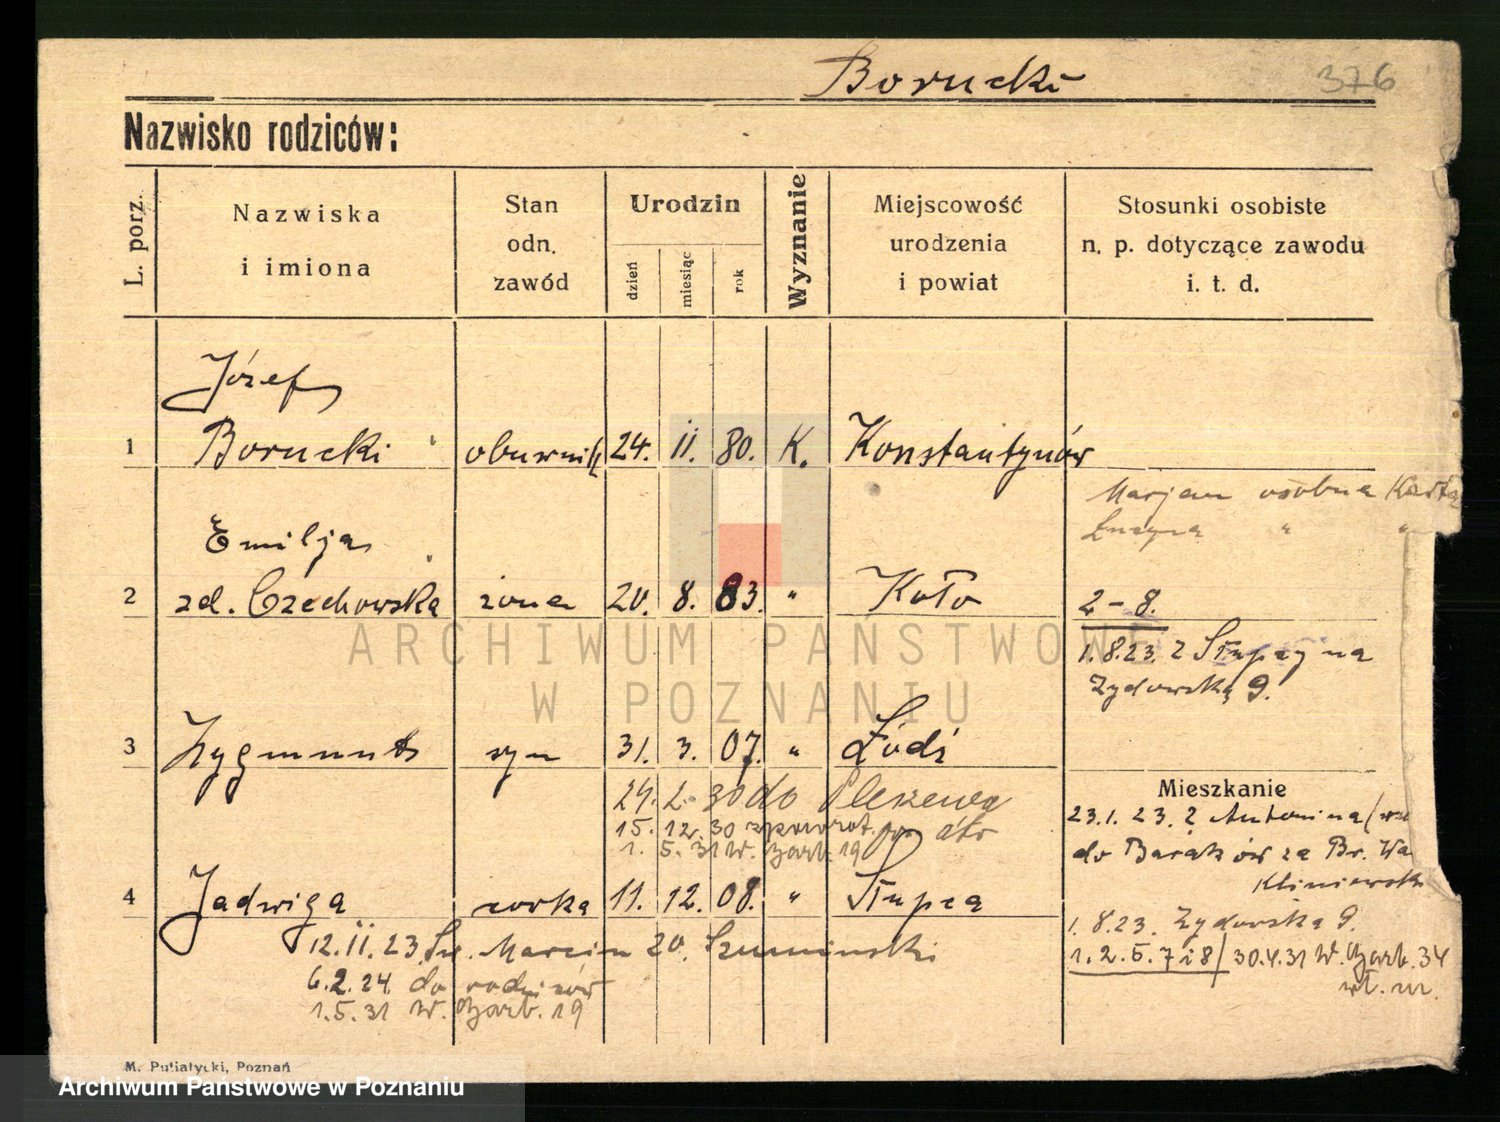 Borucki 376
Nazwisko rodziców:
L. porz. Nazwiska i imiona Stan odn. zawód Urodzin dzień miesiąc rok Wyznanie Miejscowość urodzenia i powiat Stosunki osobiste n. p. dotyczące zawodu i. t. d.
Józef
1 Borucki obuwnik 24. 11. 80. K. Konstantynów
Marjan osobna Karta
Łucyna " "
Emilja
2 zd. Czechowska żona 20. 8. 83. " Koło
2 – 8.
1.8.23. z Słupcy na
Żydowską 9.
3 Zygmunt syn 31. 3. 07. " Łódź
24. 2. 30 do Pleszewa
15. 12. 30 zpowrot.
1. 5. 31 W. Garb. 19
Mieszkanie
23.1.23. z Antonina
do Baraków za Br. Wa
4 Jadwiga córka 11. 12. 08. " Słupca
12.11.23 Św. Marcin 20. Szumiński
6.2.24. do rodziców
1.5.31 W. Garb. 19
1.8.23. Żydowska 9.
1.2.5.7 i 8/ 30.4.31 W. Garb. 34
wł. m.
M. Putiatycki, Poznań
ARCHIWUM PAŃSTWOWE
W POZNANIU
Archiwum Państwowe w Poznaniu